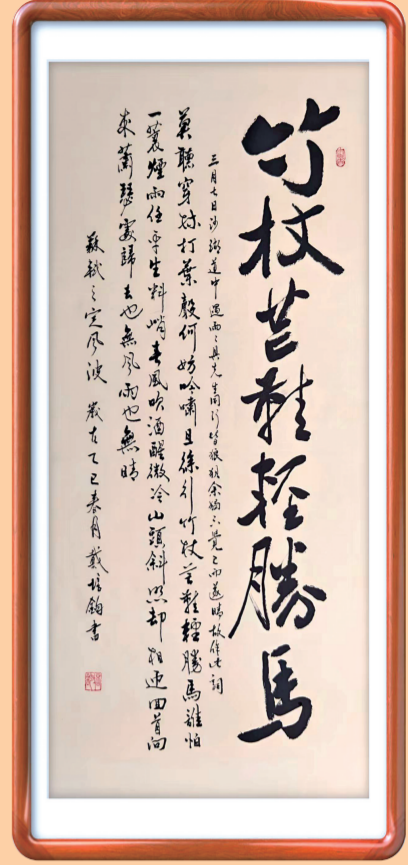 竹杖芒鞋輕勝馬
三月七日沙湖道中遇雨々具先去同行皆狼狽余獨不覺已而遂晴故作此詞
莫聽穿林打葉聲何妨吟嘯且徐行竹杖芒鞋輕勝馬誰怕
一蓑煙雨任平生料峭春風吹酒醒微冷山頭斜照却相迎回首向
來蕭瑟處歸去也無風雨也無晴
蘇軾之定風波 歲在乙巳春月戴培鈞書